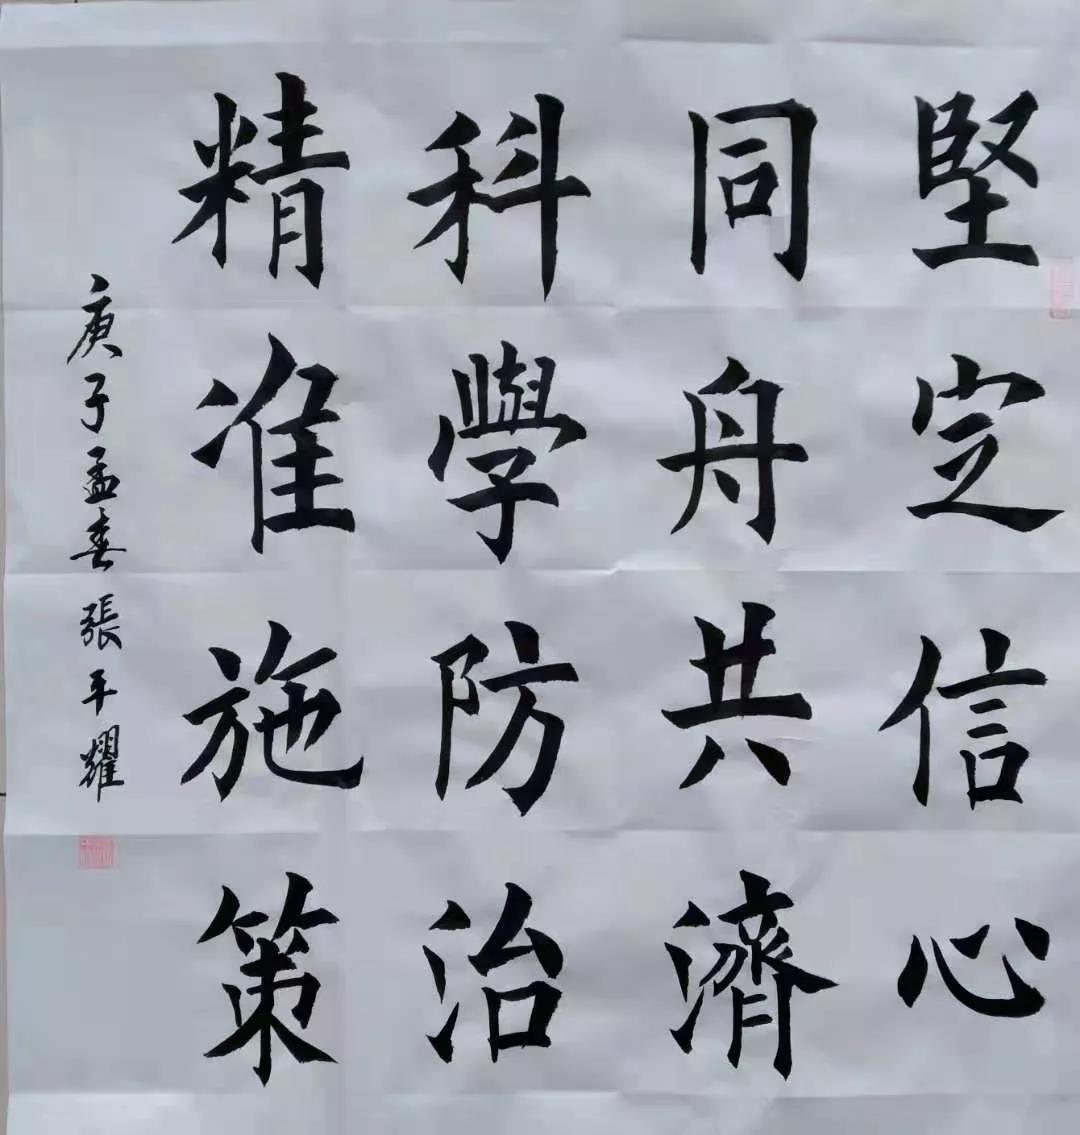 堅定信心
同舟共濟
科學防治
精准施策
庚子孟春張平耀